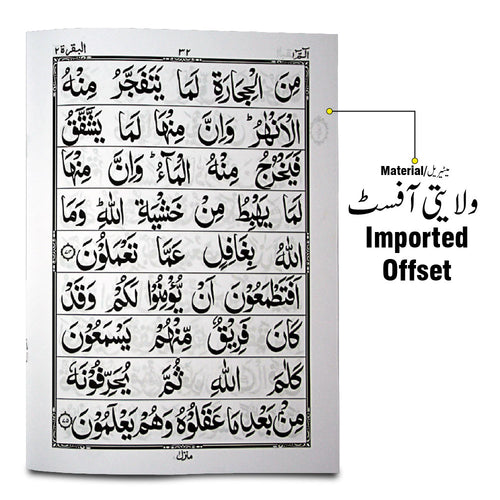 البقرة ٢
٣٢
الٓمّٓ ١
مِنَ الْحِجَارَةِ لَمَا يَتَفَجَّرُ مِنْهُ
الْاَنْهٰرُ ؕ وَاِنَّ مِنْهَا لَمَا يَشَّقَّقُ
فَيَخْرُجُ مِنْهُ الْمَآءُ ؕ وَاِنَّ مِنْهَا
لَمَا يَهْبِطُ مِنْ خَشْيَةِ اللّٰهِ ؕ وَمَا
اللّٰهُ بِغَافِلٍ عَمَّا تَعْمَلُوْنَ ﴿۷۴﴾
اَفَتَطْمَعُوْنَ اَنْ يُّؤْمِنُوْا لَكُمْ وَقَدْ
كَانَ فَرِيْقٌ مِّنْهُمْ يَسْمَعُوْنَ
كَلٰمَ اللّٰهِ ثُمَّ يُحَرِّفُوْنَهٗ
مِنْۢ بَعْدِ مَا عَقَلُوْهُ وَهُمْ يَعْلَمُوْنَ ﴿۷۵﴾
منزل
Material/میٹیریل
ولایتی آفسٹ
Imported
Offset